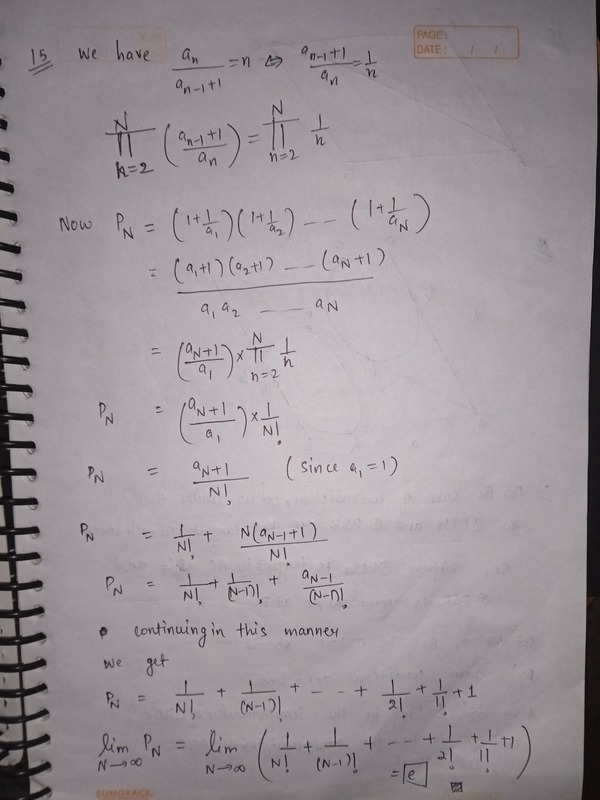 PAGE:
DATE: / /
15 We have a_n/(a_{n-1}+1) = n ⇔ (a_{n-1}+1)/a_n = 1/n
∏_{n=2}^{N} ((a_{n-1}+1)/a_n) = ∏_{n=2}^{N} 1/n
Now P_N = (1+1/a_1)(1+1/a_2) -- -- (1+1/a_N)
= (a_1+1)(a_2+1) -- -- (a_N+1) / a_1 a_2 -- -- a_N
= ((a_N+1)/a_1) × ∏_{n=2}^{N} 1/n
P_N = ((a_N+1)/a_1) × 1/N!
P_N = (a_N+1)/N! (since a_1=1)
P_N = 1/N! + N(a_{N-1}+1)/N!
P_N = 1/N! + 1/(N-1)! + a_{N-1}/(N-1)!
• continuing in this manner
we get
P_N = 1/N! + 1/(N-1)! + -- -- + 1/2! + 1/1! + 1
lim_{N→∞} P_N = lim_{N→∞} (1/N! + 1/(N-1)! + -- -- + 1/2! + 1/1! + 1)
= e
SUNGRACE